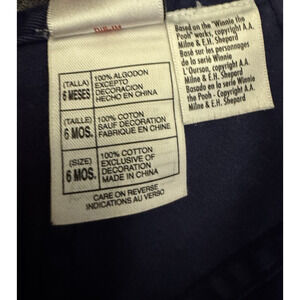 (TALLA)
6 MESES
100% ALGODON
EXCEPTO
DECORACION
HECHO EN CHINA
(TAILLE)
6 MOS.
100% COTON
SAUF DECORATION
FABRIQUE EN CHINA
(SIZE)
6 MOS.
100% COTTON
EXCLUSIVE OF
DECORATION
MADE IN CHINA
CARE ON REVERSE
INDICATIONS AU VERSO
Based on the "Winnie the
Pooh" works, copyright A.A.
Milne & E.H. Shepard
Basé sur les personnages
de la serié Winnie
L'Ourson, copyright A.A.
Milne & E.H. Shepard
Basado en la serié Winnie
the Pooh, copyright A.A.
Milne & E.H. Shepard